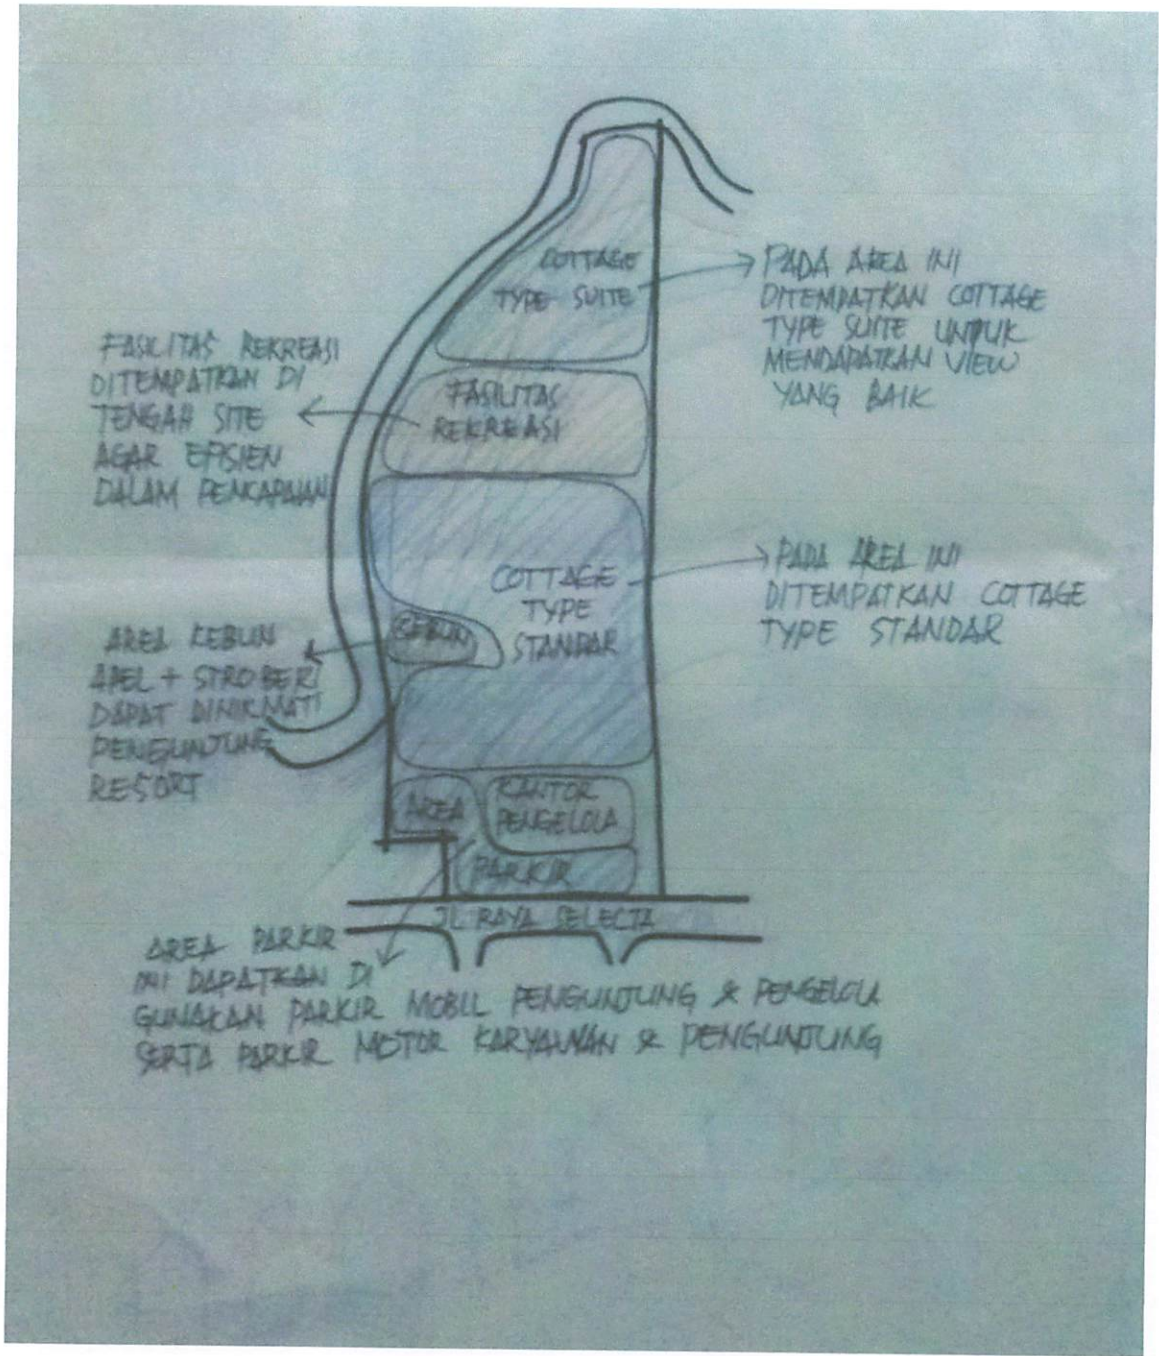 COTTAGE
TYPE SUITE
PADA AREA INI
DITEMPATKAN COTTAGE
TYPE SUITE UNTUK
MENDAPATKAN VIEW
YANG BAIK
FASILITAS REKREASI
DITEMPATKAN DI
TENGAH SITE
AGAR EFISIEN
DALAM PENCAPAIAN
FASILITAS
REKREASI
COTTAGE
TYPE
STANDAR
PADA AREA INI
DITEMPATKAN COTTAGE
TYPE STANDAR
KEBUN
AREA KEBUN
APEL + STROBERI
DAPAT DINIKMATI
PENGUNJUNG
RESORT
AREA
KANTOR
PENGELOLA
PARKIR
JL RAYA SELECTA
AREA PARKIR
INI DAPATKAN DI
GUNAKAN PARKIR MOBIL PENGUNJUNG & PENGELOLA
SERTA PARKIR MOTOR KARYAWAN & PENGUNJUNG